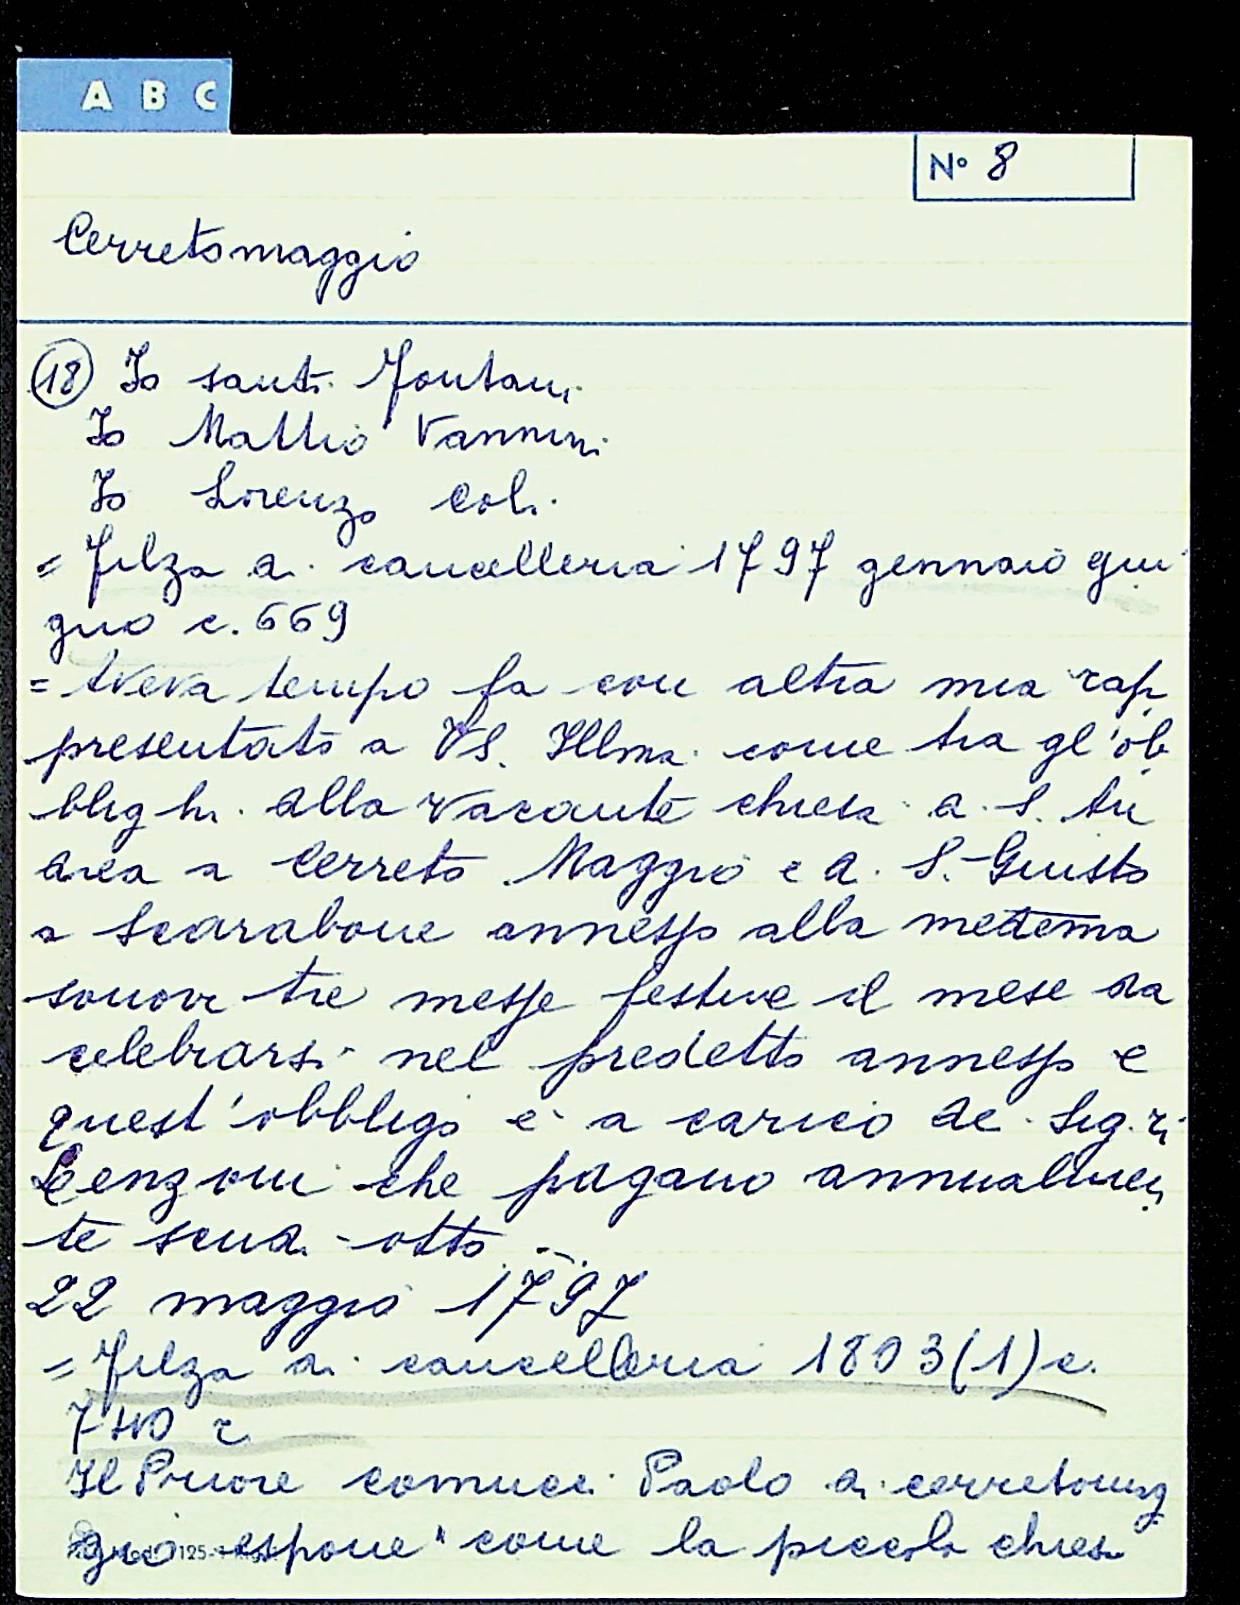 A B C
N° 8
Cerretomaggio
18 Io santi Fontani
Io Matteo Vannini
Io Lorenzo Coli
= Filza di cancelleria 1797 gennaio giu
gno c. 669
= Aveva tempo fa con altra mia rap
presentato a VS. Illma come tra gl'ob
blighi alla vacante chiesa di S. An
drea a Cerreto Maggio e di S. Giusto
a Scarabone annesso alla medema
sonovi tre messe festive il mese da
celebrarsi nel predetto annesso e
quest'obbligo è a carico dei Sig.ri
Cenzoni che pagano annualmen
te scudi otto
22 maggio 1797
= Filza di cancelleria 1803 (1) c.
740 r
Il Priore Paolo di cerretomag
gio espone "come la piccola chiesa
125-1